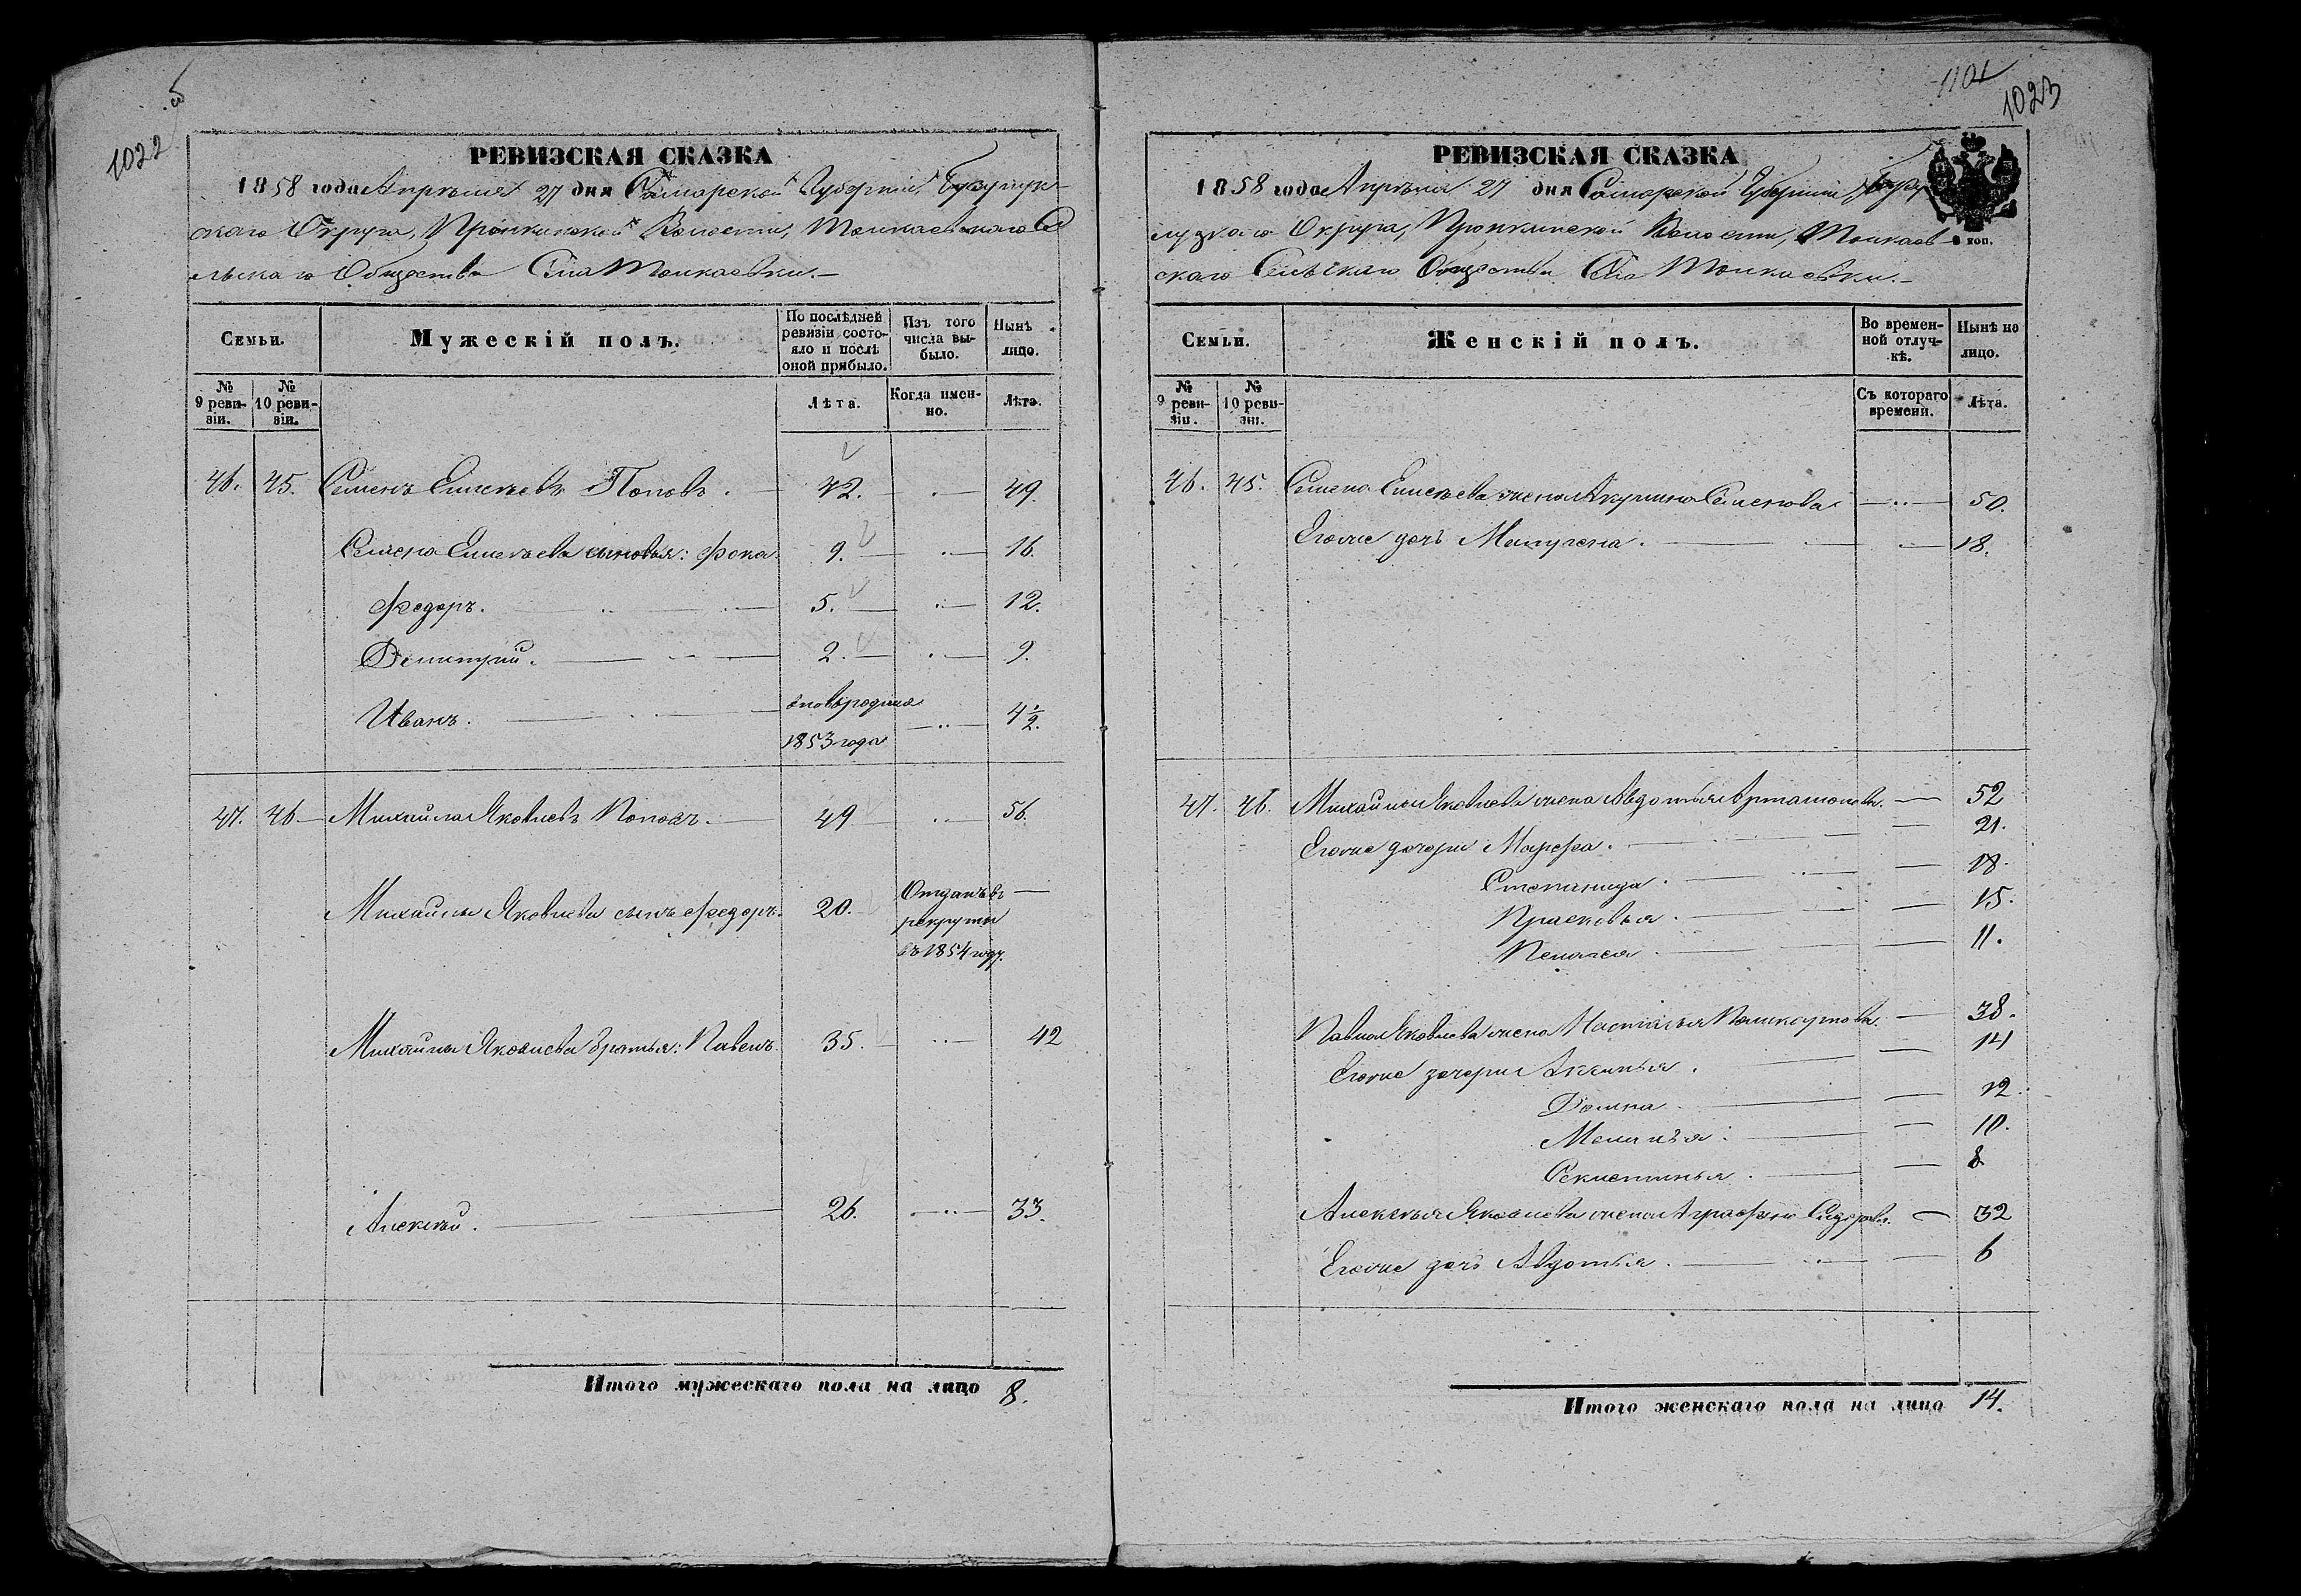 1022
РЕВИЗСКАЯ СКАЗКА
1858 года Апрѣля 27 дня Самарской Губерніи Бузулук-
скаго Округа, Пронкинской Волости, Толкаевскаго Се
льскаго Общества Села Толкаевки.
Семьи.
Мужескій полъ.
По послѣдней ревизіи состояло и послѣ оной прибыло.
Изъ того числа выбыло.
Нынѣ на лицо.
№ 9 ревизіи.
№ 10 ревизіи.
Лѣта.
Когда именно.
Лѣта.
46. 45. Семенъ Елисѣевъ Поповъ. 42. 49.
Семена Елисѣева сыновья: Фока 9. 16.
Федоръ. 5. 12.
Дмитрий. 2. 9.
Иванъ. 4 1/2.
1853 года
47. 46 Михайла Яковлевъ Поповъ. 49 56.
Михайлы Яковлева сынъ Федоръ. 20. Отданъ въ
рекруты
въ 1854 году.
Михайлы Яковлева братья: Павелъ. 35. 42
Алексѣй. 26. 33.
Итого мужескаго пола на лицо 8.
1101
1023
РЕВИЗСКАЯ СКАЗКА
1858 года Апрѣля 27 дня Самарской Губерніи Бузу
лукскаго Округа, Пронкинской Волости, Толкаев
скаго Сельскаго Общества Села Толкаевки.
Семьи.
Женскій полъ.
Во временной отлучкѣ.
Нынѣ на лицо.
№ 9 ревизіи.
№ 10 ревизіи.
Съ котораго времени.
Лѣта.
46. 45. Семена Елисѣева жена Акулина Семенова 50.
Егоже дочь 18.
47. 46. Михайлы Яковлева жена Авдотья Артамонова. 52
Егоже дочери Марфа. 21.
Степанида. 18.
Прасковья. 15.
Пелагея. 11.
Павла Яковлева жена Настасья Поликарпова. 38.
Егоже дочери Аксинья. 14
Домна. 12.
Меланья. 10.
8
Алексѣя Яковлева жена Аграфена Сидорова. 32
Егоже дочь Авдотья. 6
Итого женскаго пола на лицо 14.